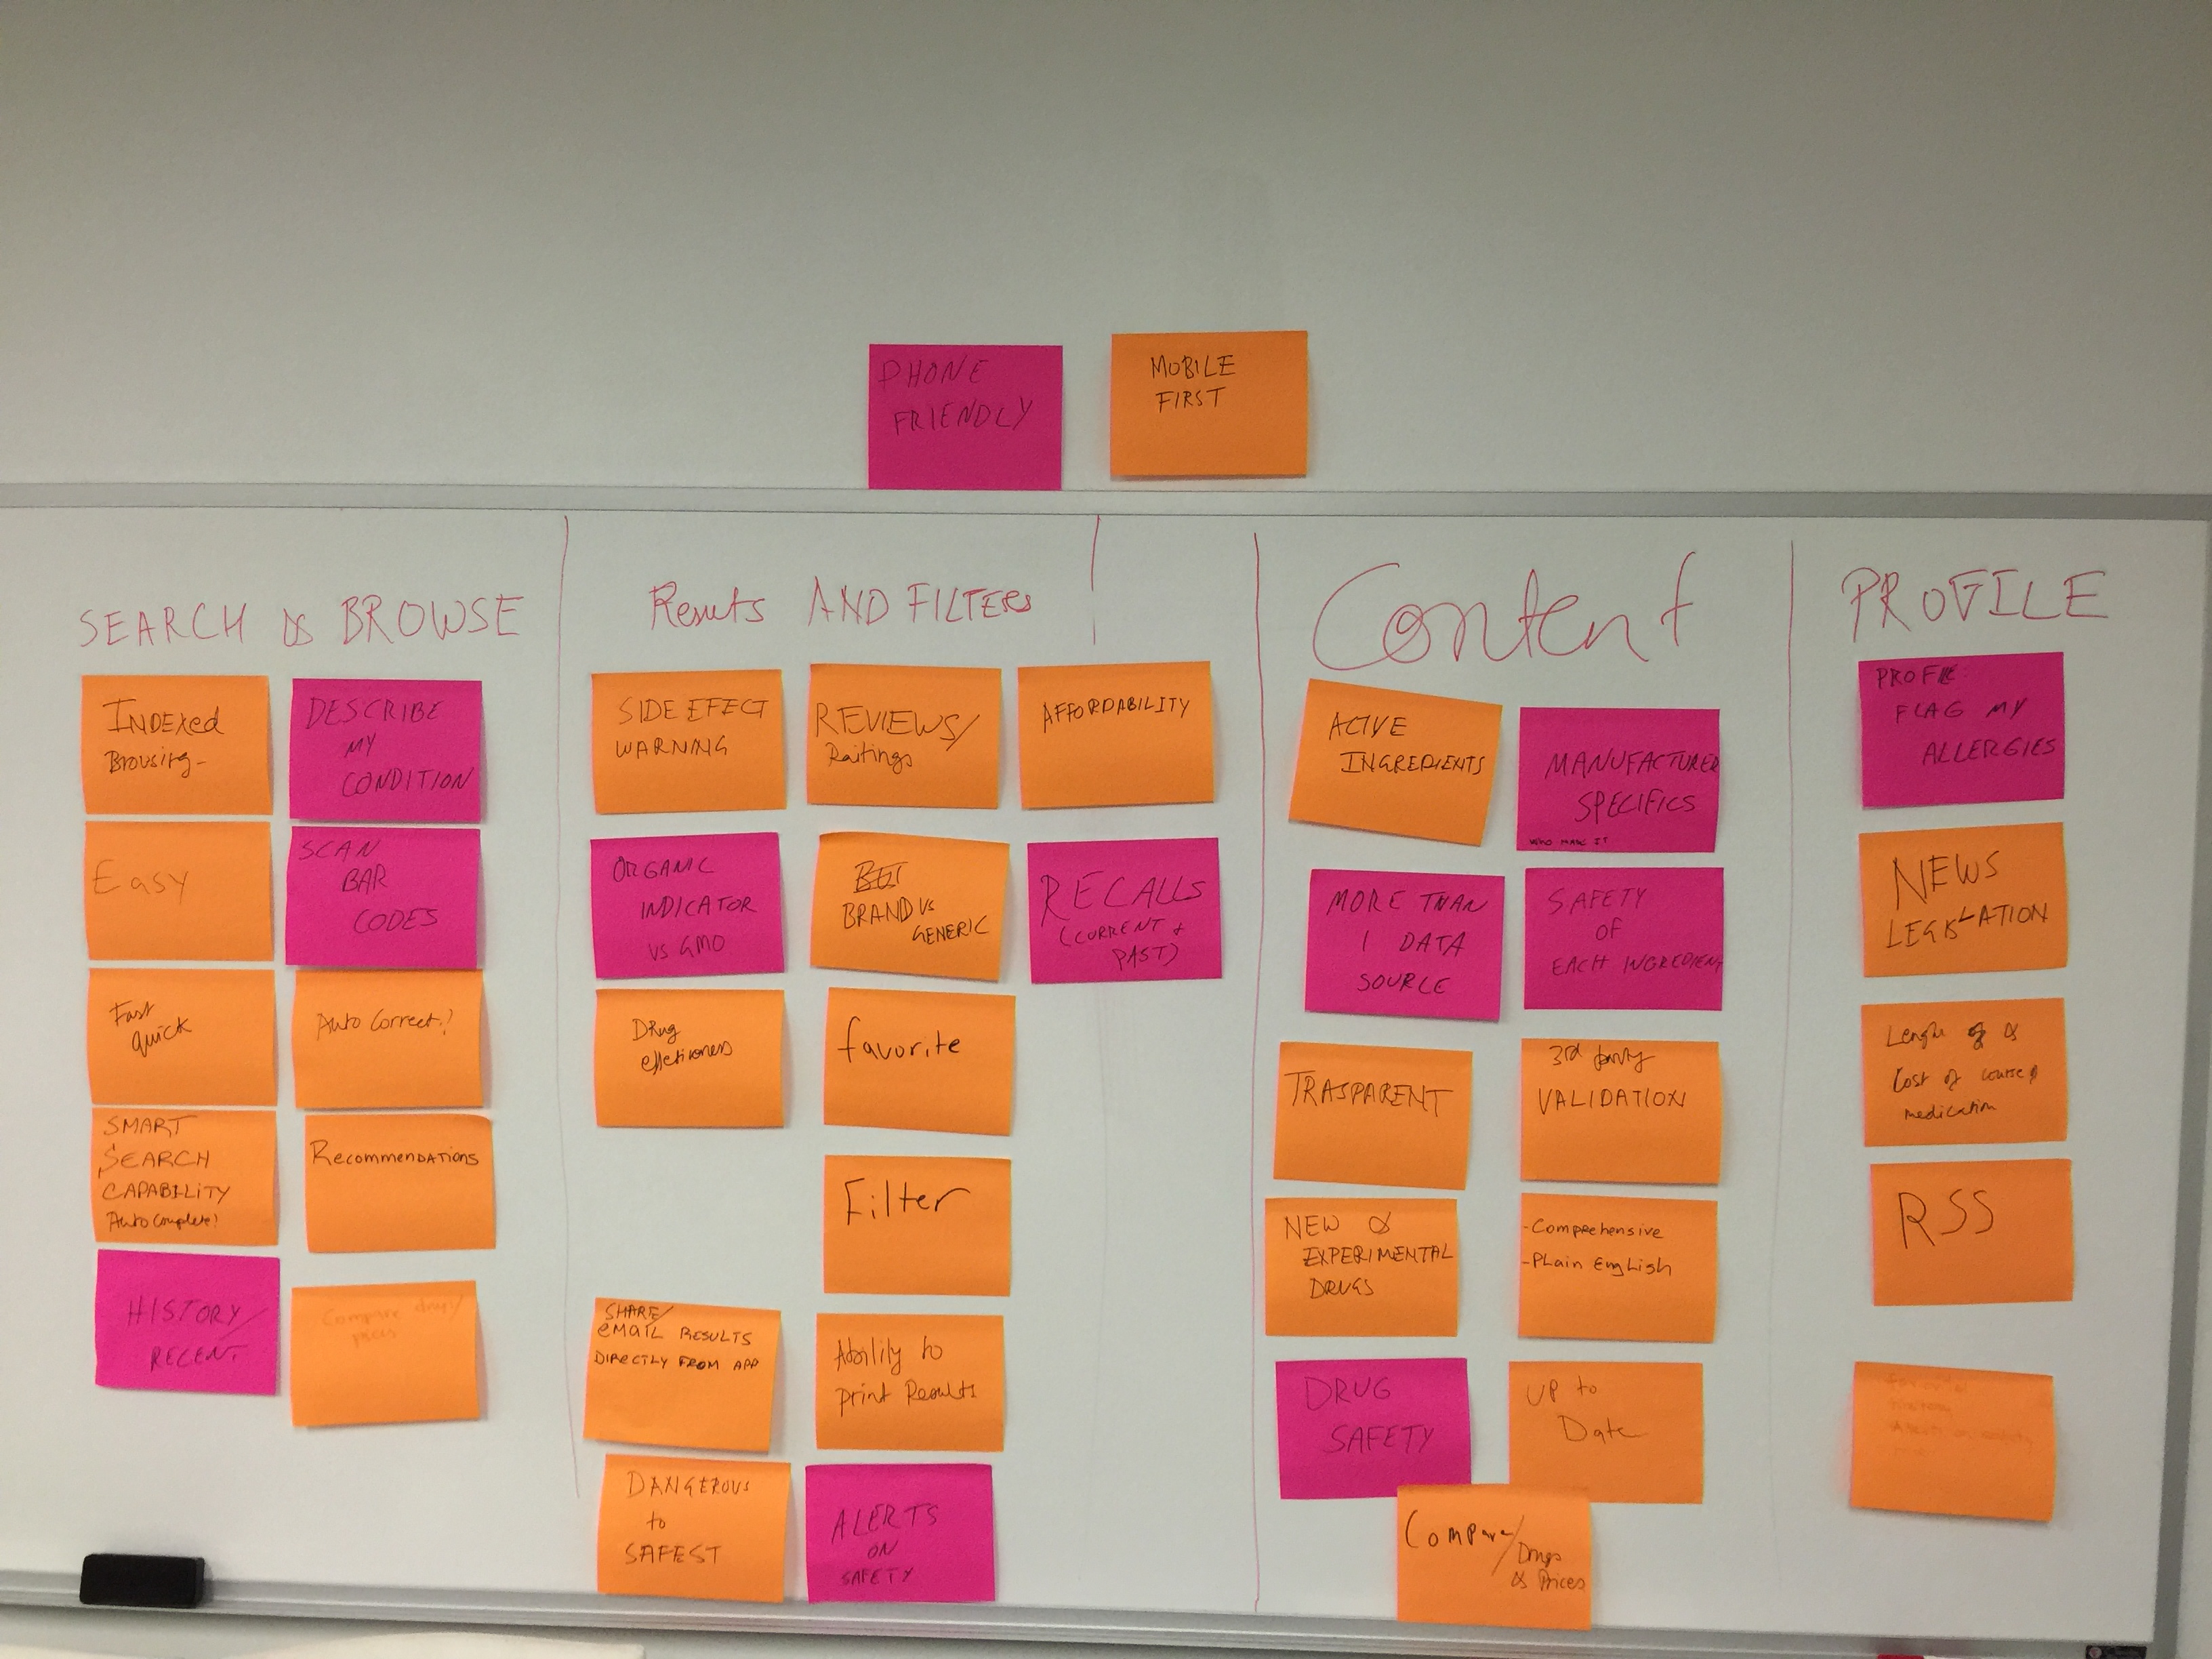 PHONE
FRIENDLY
MOBILE
FIRST
SEARCH & BROWSE
INDEXed
Browsing-
DESCRIBE
MY
CONDITION
Easy
SCAN
BAR
CODES
Fast
quick
Auto Correct?
SMART
SEARCH
CAPABILITY
Auto Complete!
RecommenDATIONS
HISTORY/
RECENT
Compare drugs/
prices
Results AND FILTERS
SIDE EFECT
WARNING
REVIEWS/
Raitings
AFFORDABILITY
ORGANIC
INDICATOR
VS GMO
BRAND VS
GENERIC
RECALLS
(CURRENT +
PAST)
DRug
effectiveness
favorite
Filter
SHARE/
EMAIL RESULTS
DIRECTLY FROM APP
Ability to
print Results
DANGEROUS
to
SAFEST
ALERTS
ON
SAFETY
Content
ACIVE
INGREDIENTS
MANUFACTURER
SPECIFICS
WHO MAKE IT
MORE THAN
1 DATA
SOURCE
SAFETY
OF
EACH INGREDIENT
TRASPARENT
3rd party
VALIDATION
NEW &
EXPERIMENTAL
DRUGS
-Comprehensive
-Plain English
DRUG
SAFETY
UP to
Date
Compare/Drugs
& Prices
PROFILE
PROFILE:
FLAG MY
ALLERGIES
NEWS
LEGISLATION
Lenght of &
Cost of course
medication
RSS